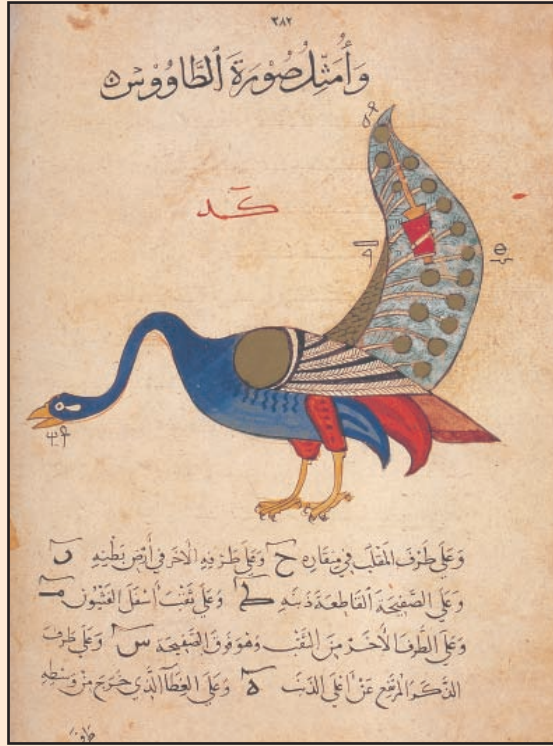 ٣٨٢
وَأُمَثِّلُ صُورَةَ ٱلطَّاوُوْسِ
كد
وَعَلَى طَرَفِ المَقلَبِ فِي مِنقَارِهِ ح وَعَلَى طَرَفِهِ الاخَرِ فِي أَرْضِ بَطْنِهِ
وَعَلَى الصَّفِيحَةِ القَاطِعَةِ ذَنَبَه وَعَلَى ثَقْبِ اسْفَلِ
وَعَلَى الطَّرَفِ الاخَرِ مِنَ الثَّقْبِ وَهُوَ فَوْقَ الصَّفِيحَةِ س وَعَلَى طَرَفِ
الذَّكَرِ المُرتَفِع عَنْ اعْلَى الذَّنَبِ ه وَعَلَى الغِطَا الَّذِي خَرَجَ مِنْ وَسْطِهِ